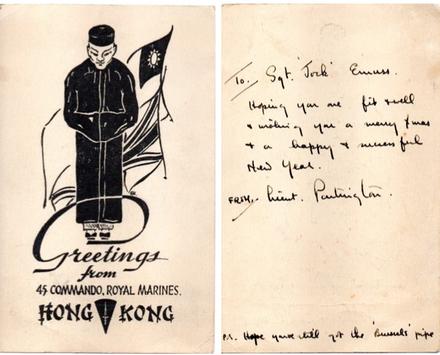 Greetings
from
45 COMMANDO, ROYAL MARINES.
HONG KONG
To. Sgt. 'Jock'
Hoping you are fit & well
& wishing you a merry Xmas
& a happy & successful
New Year.
FROM. Lieut.
P.S. Hope you've still got the pipe